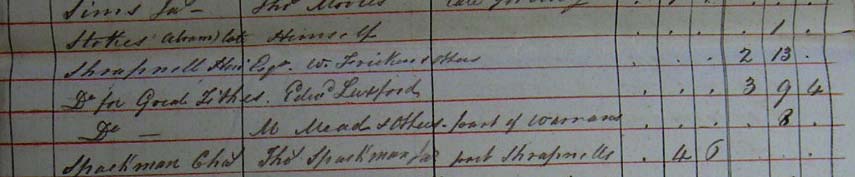 Sims Jas — Thos Moores late
Stokes Abram late Himself . . . . 1 .
Shrapnell Henr Esqr. Wm Fricker & others . . . 2 13 .
Do for Great Tithes. Edwd Luxford . . . 3 9 4
Do — M Mead & Others part of Warrans . . . . 8 .
Spackman Chas Thos Spackman Jas part Shrapnells . 4 6 . . .